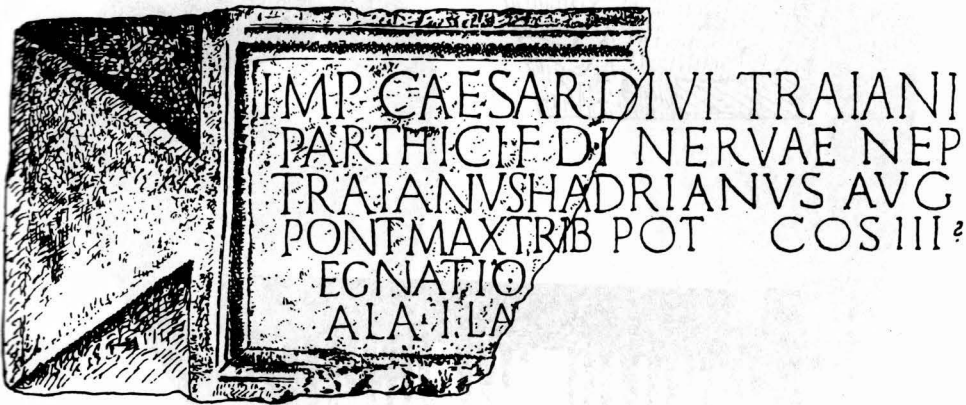 IMP CAESAR DIVI TRAIANI
PARTHICI F DI NERVAE NEP
TRAIANVSHADRIANVS AVG
PONTMAXTRIB POT COS III ?
EGNATIO
ALA I LA